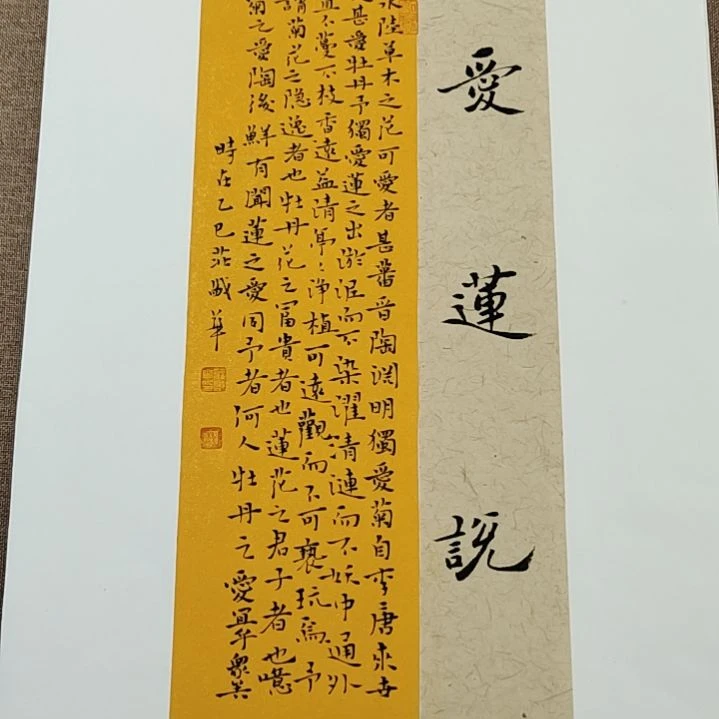 愛蓮説
水陸草木之花可愛者甚蕃晋陶渊明獨愛菊自李唐來世
甚愛牡丹予獨愛蓮之出淤泥而不染濯清漣而不妖中通外
直不蔓不枝香遠益清亭々淨植可遠觀而不可褻玩焉予
謂菊花之隐逸者也牡丹花之富貴者也蓮花之君子者也噫
菊之愛陶後鮮有聞蓮之愛同予者何人牡丹之愛宜乎衆矣
時在乙巳 華